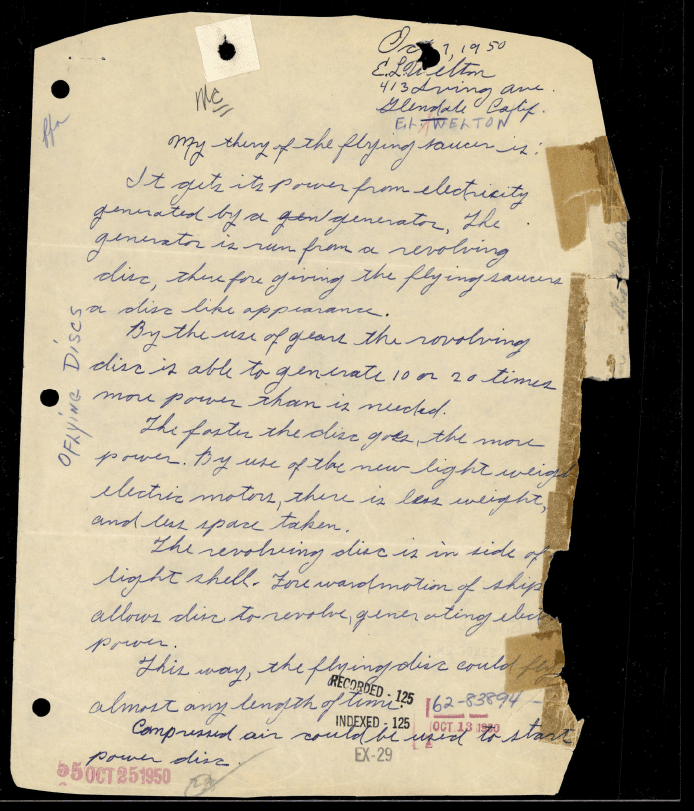 Oct 7, 1950
E.L. Welton
413 Irving Ave.
Glendale Calif.
E.L. WELTON
Mc
My thery of the flying saucer is:
It gets its power from electricity
generated by a gen generator, The
generator is run from a revolving
disc, therefore giving the flying saucers
a disc like appearance.
By the use of gears the rovolving
disc is able to generate 10 or 20 times
more power than is needed.
The faster the disc goes, the more
power. By use of the new light weigh
electric motors, there is less weight,
and less space taken.
The revolving disc is in side of
light shell. Foreward motion of ship
allows disc to revolve, generating elec
power.
This way, the flying disc could fly
almost any length of time.
Compressed air could be used to start
power disc.
FLYING DISCS
RECORDED - 125
INDEXED - 125
EX-29
62-83894-
OCT 13 1950
55 OCT 25 1950